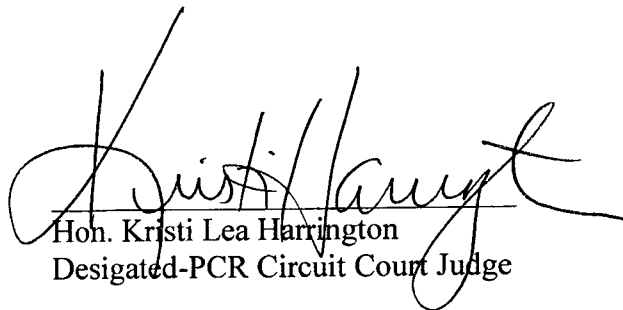 Kristi Harrington
Hon. Kristi Lea Harrington
Desigated-PCR Circuit Court Judge